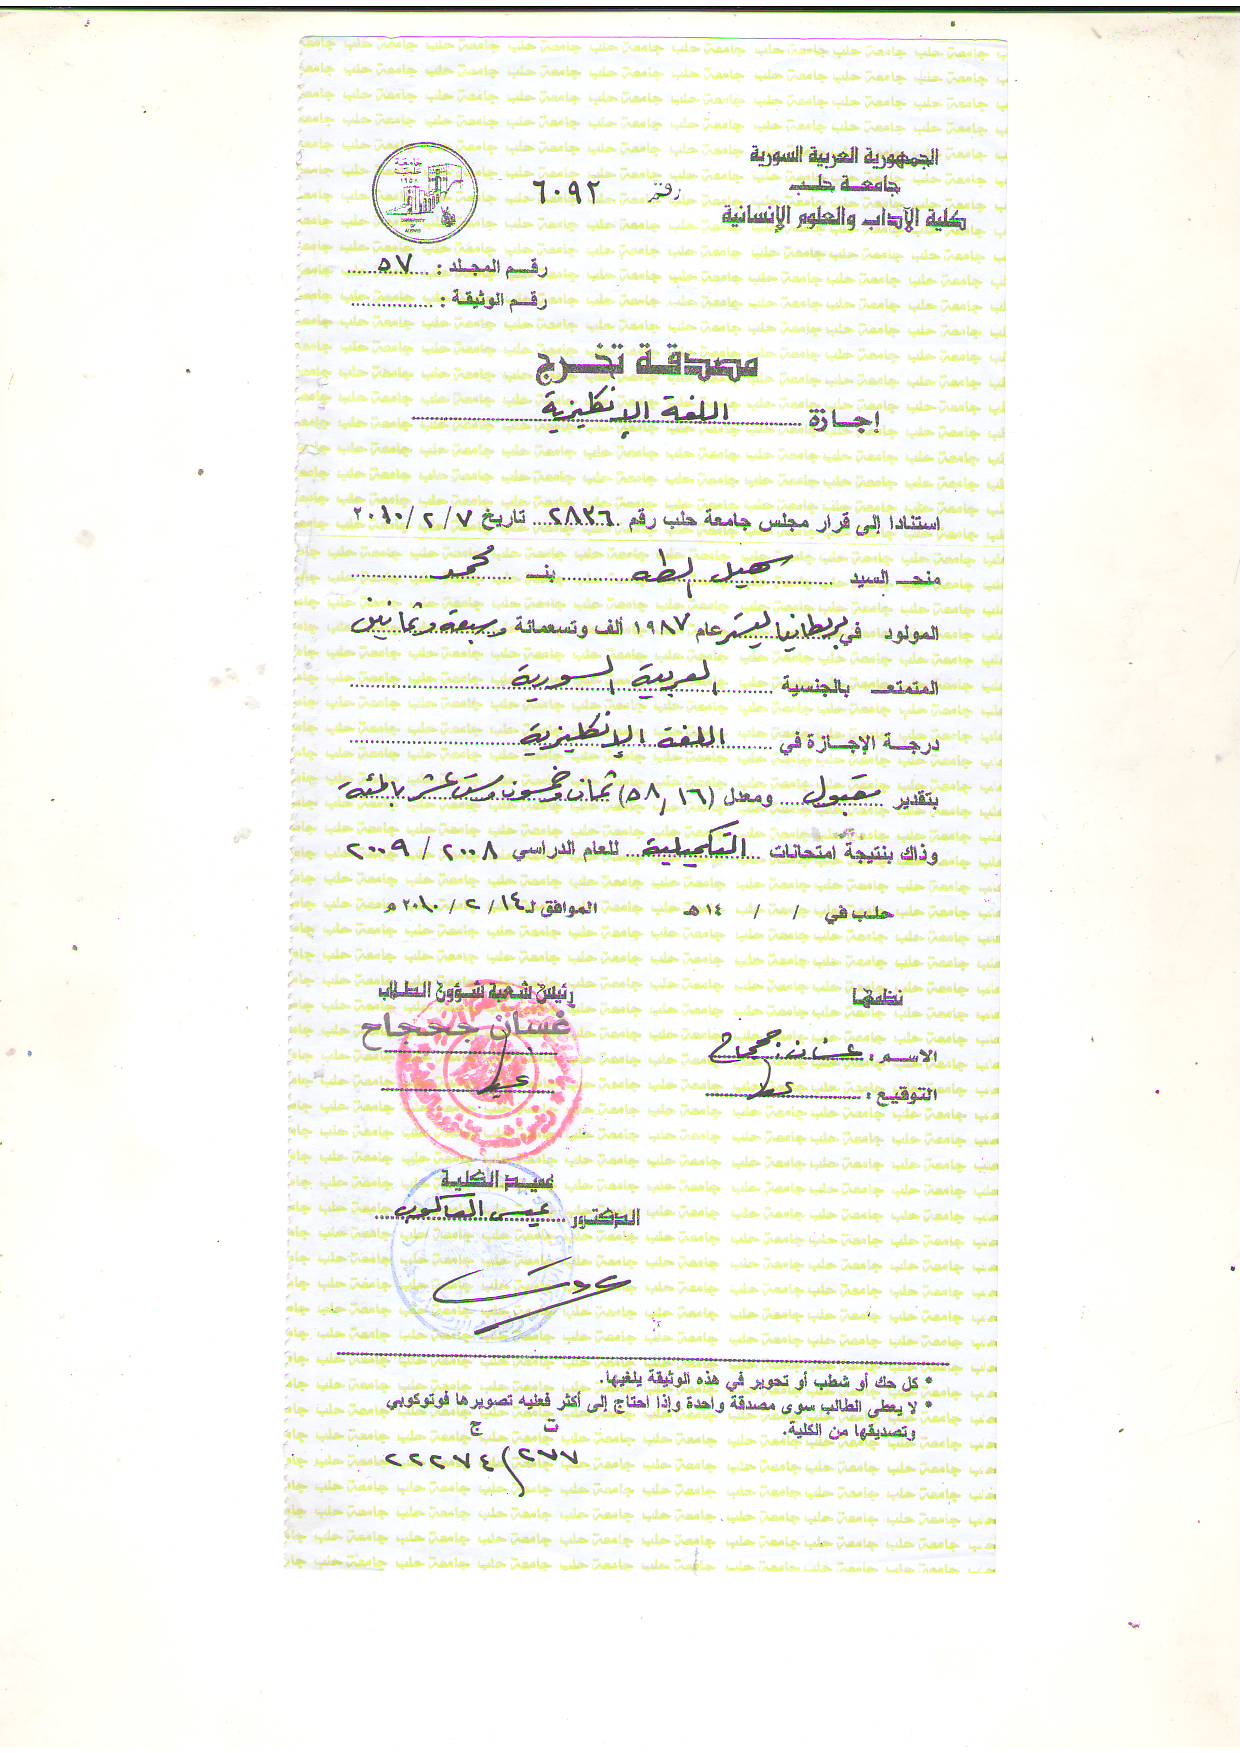 الجمهورية العربية السورية
جامعة حلب
كلية الآداب والعلوم الإنسانية
رقم ٦٠٩٢
جامعة حلب
١٩٥٨
UNIVERSITY OF ALEPPO
رقم المجلد : ٥٧
رقم الوثيقة :
مصدقة تخرج
إجازة اللغة الإنكليزية
استنادا إلى قرار مجلس جامعة حلب رقم ٢٨٣٦ تاريخ ٧ / ٢ / ٢٠١٠
منح السيد سهيل الطه بن محمد
المولود في بريطانيا ليستر عام ١٩٨٧ ألف وتسعمائة وسبعة وثمانين
المتمتع بالجنسية العربية السورية
درجة الإجازة في اللغة الإنكليزية
بتقدير مقبول ومعدل (٥٨,١٦) ثمان وخمسون وست عشر بالمئة
وذلك بنتيجة امتحانات التكميلية للعام الدراسي ٢٠٠٨ / ٢٠٠٩
حلب في / / ١٤ هـ الموافق لـ ١٤ / ٢ / ٢٠١٠ م
نظمها
الاسم : غسان جحجاح
التوقيع :
رئيس شعبة شؤون الطلاب
غسان جحجاح
عميد الكلية
الدكتور عيسى العاكوب
* كل حك أو شطب أو تحوير في هذه الوثيقة يلغيها.
* لا يعطى الطالب سوى مصدقة واحدة وإذا احتاج إلى أكثر فعليه تصويرها فوتوكوبي
وتصديقها من الكلية.
ت ج
٢٧٧ / ٢٢٢٧٤